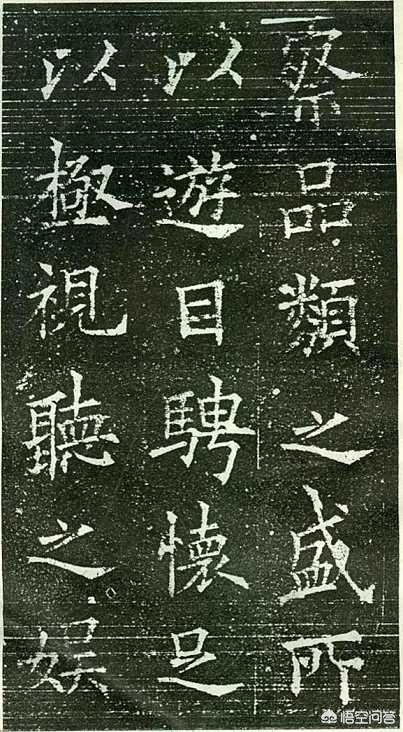 察品類之盛所
以遊目騁懷足
以極視聽之娱
悟空问答